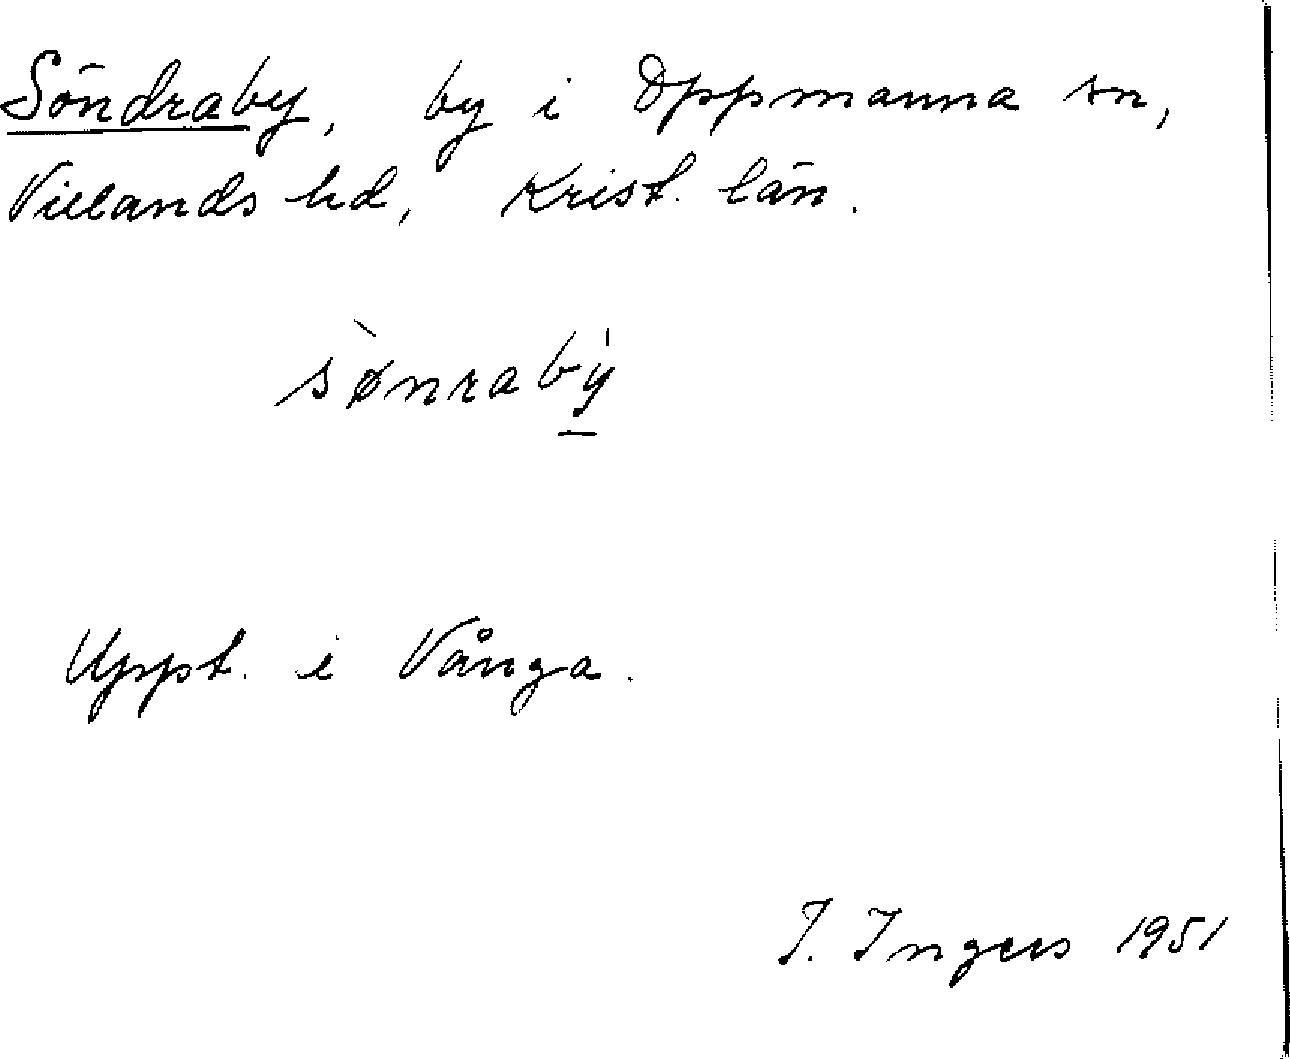 Söndraby, by i Oppmanna sn,
Villands hd, Krist. län.
sø̀nrabý̱
Uppt. i Vånga.
I. Ingers 1951